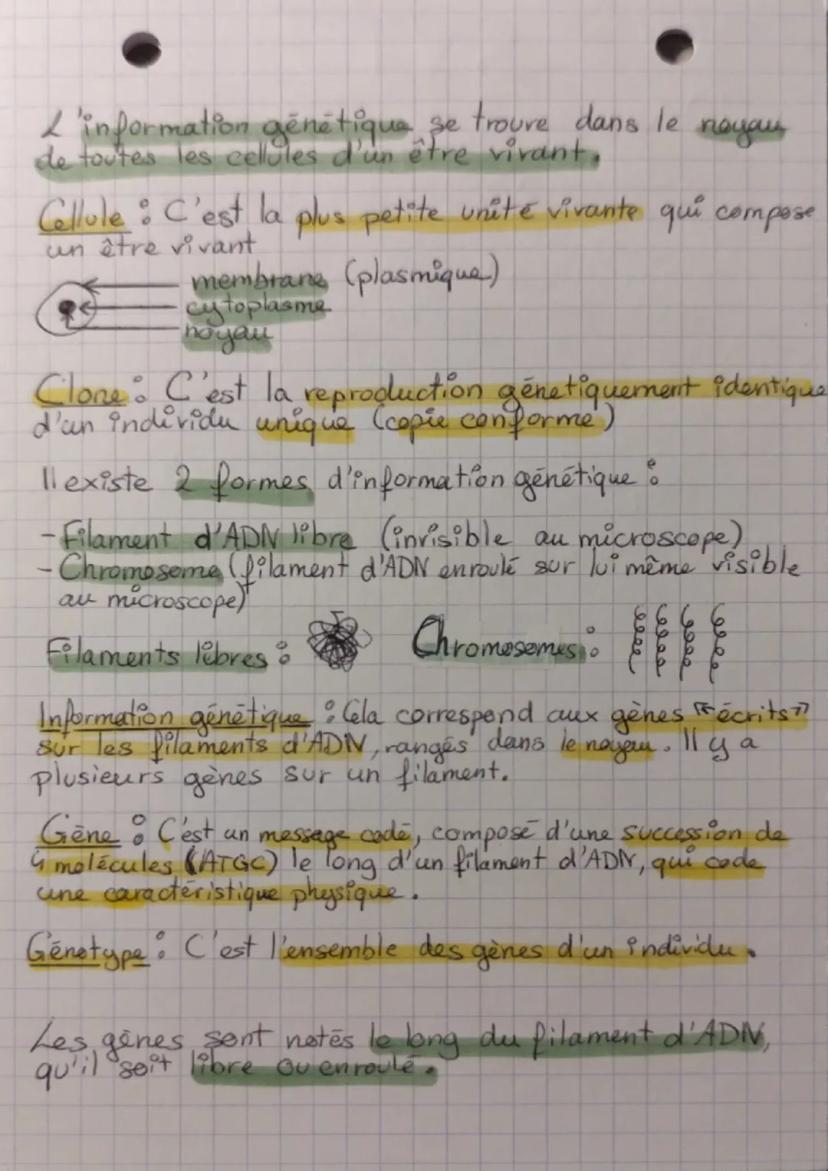 L'information génétique se trouve dans le noyau
de toutes les cellules d'un être vivant.
Cellule : C'est la plus petite unité vivante qui compose
un être vivant
membrane (plasmique)
cytoplasme
noyau
Clone : C'est la reproduction génétiquement identique
d'un individu unique (copie conforme)
Il existe 2 formes d'information génétique :
- Filament d'ADN libre (invisible au microscope)
- Chromosome (filament d'ADN enroulé sur lui même visible
au microscope)
Filaments libres : Chromosomes :
Information génétique : Cela correspond aux gènes "écrits"
sur les filaments d'ADN, rangés dans le noyau. Il y a
plusieurs gènes sur un filament.
Gène : C'est un message codé, composé d'une succession de
4 molécules (ATGC) le long d'un filament d'ADN, qui code
une caractéristique physique.
Génotype : C'est l'ensemble des gènes d'un individu.
Les gènes sont notés le long du filament d'ADN,
qu'il soit libre ou enroulé.